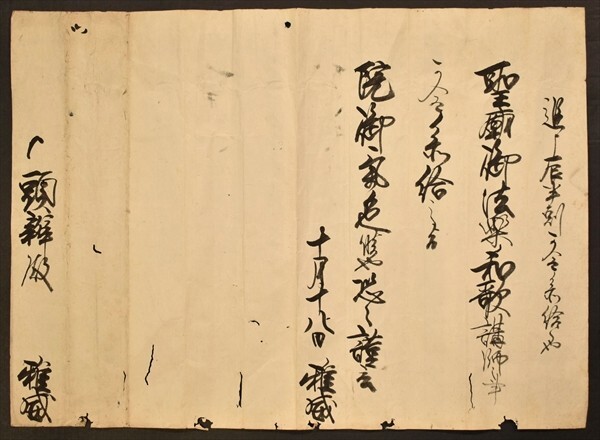 進上辰半刻可令参給也
聖廟御法楽和歌講師事
可令参給之旨
院御気色候也恐々謹言
十月十八日 雅威
頭辨殿 雅威